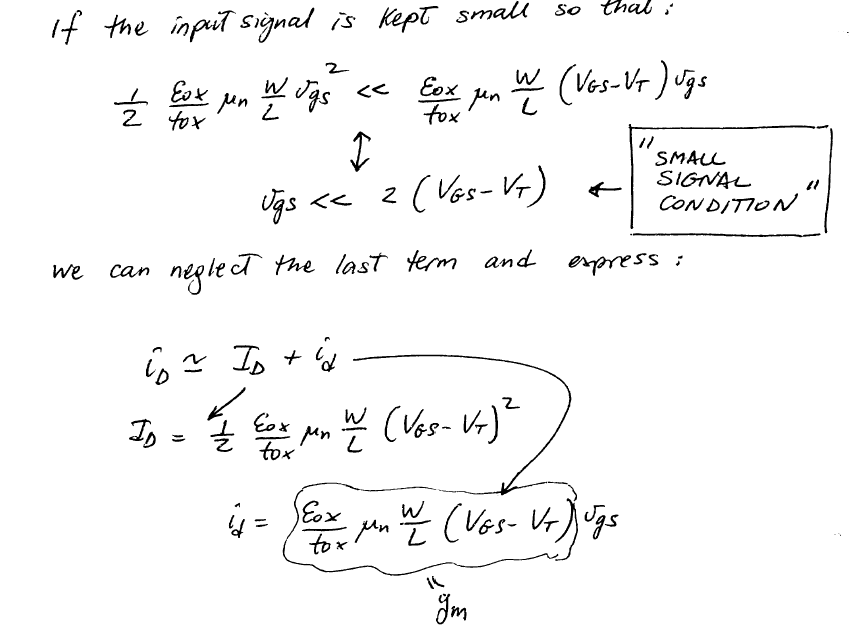 If the input signal is kept small so that :
1/2 εox/tox μn W/L vgs² << εox/tox μn W/L (VGS-VT) vgs
↕
vgs << 2 (VGS-VT) ← "SMALL
SIGNAL
CONDITION"
we can neglect the last term and express :
iD ≃ ID + id
ID = 1/2 εox/tox μn W/L (VGS-VT)²
id = εox/tox μn W/L (VGS-VT) vgs
"
gm